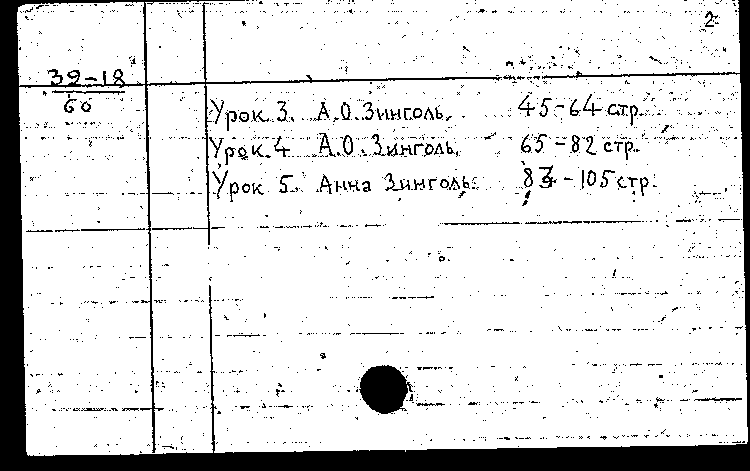 2
39-18
60
Урок 3. А.О. Зинголь. 45-64 стр.
Урок 4 А.О. Зинголь. 65-82 стр.
Урок 5. Анна Зинголь. 83-105 стр.